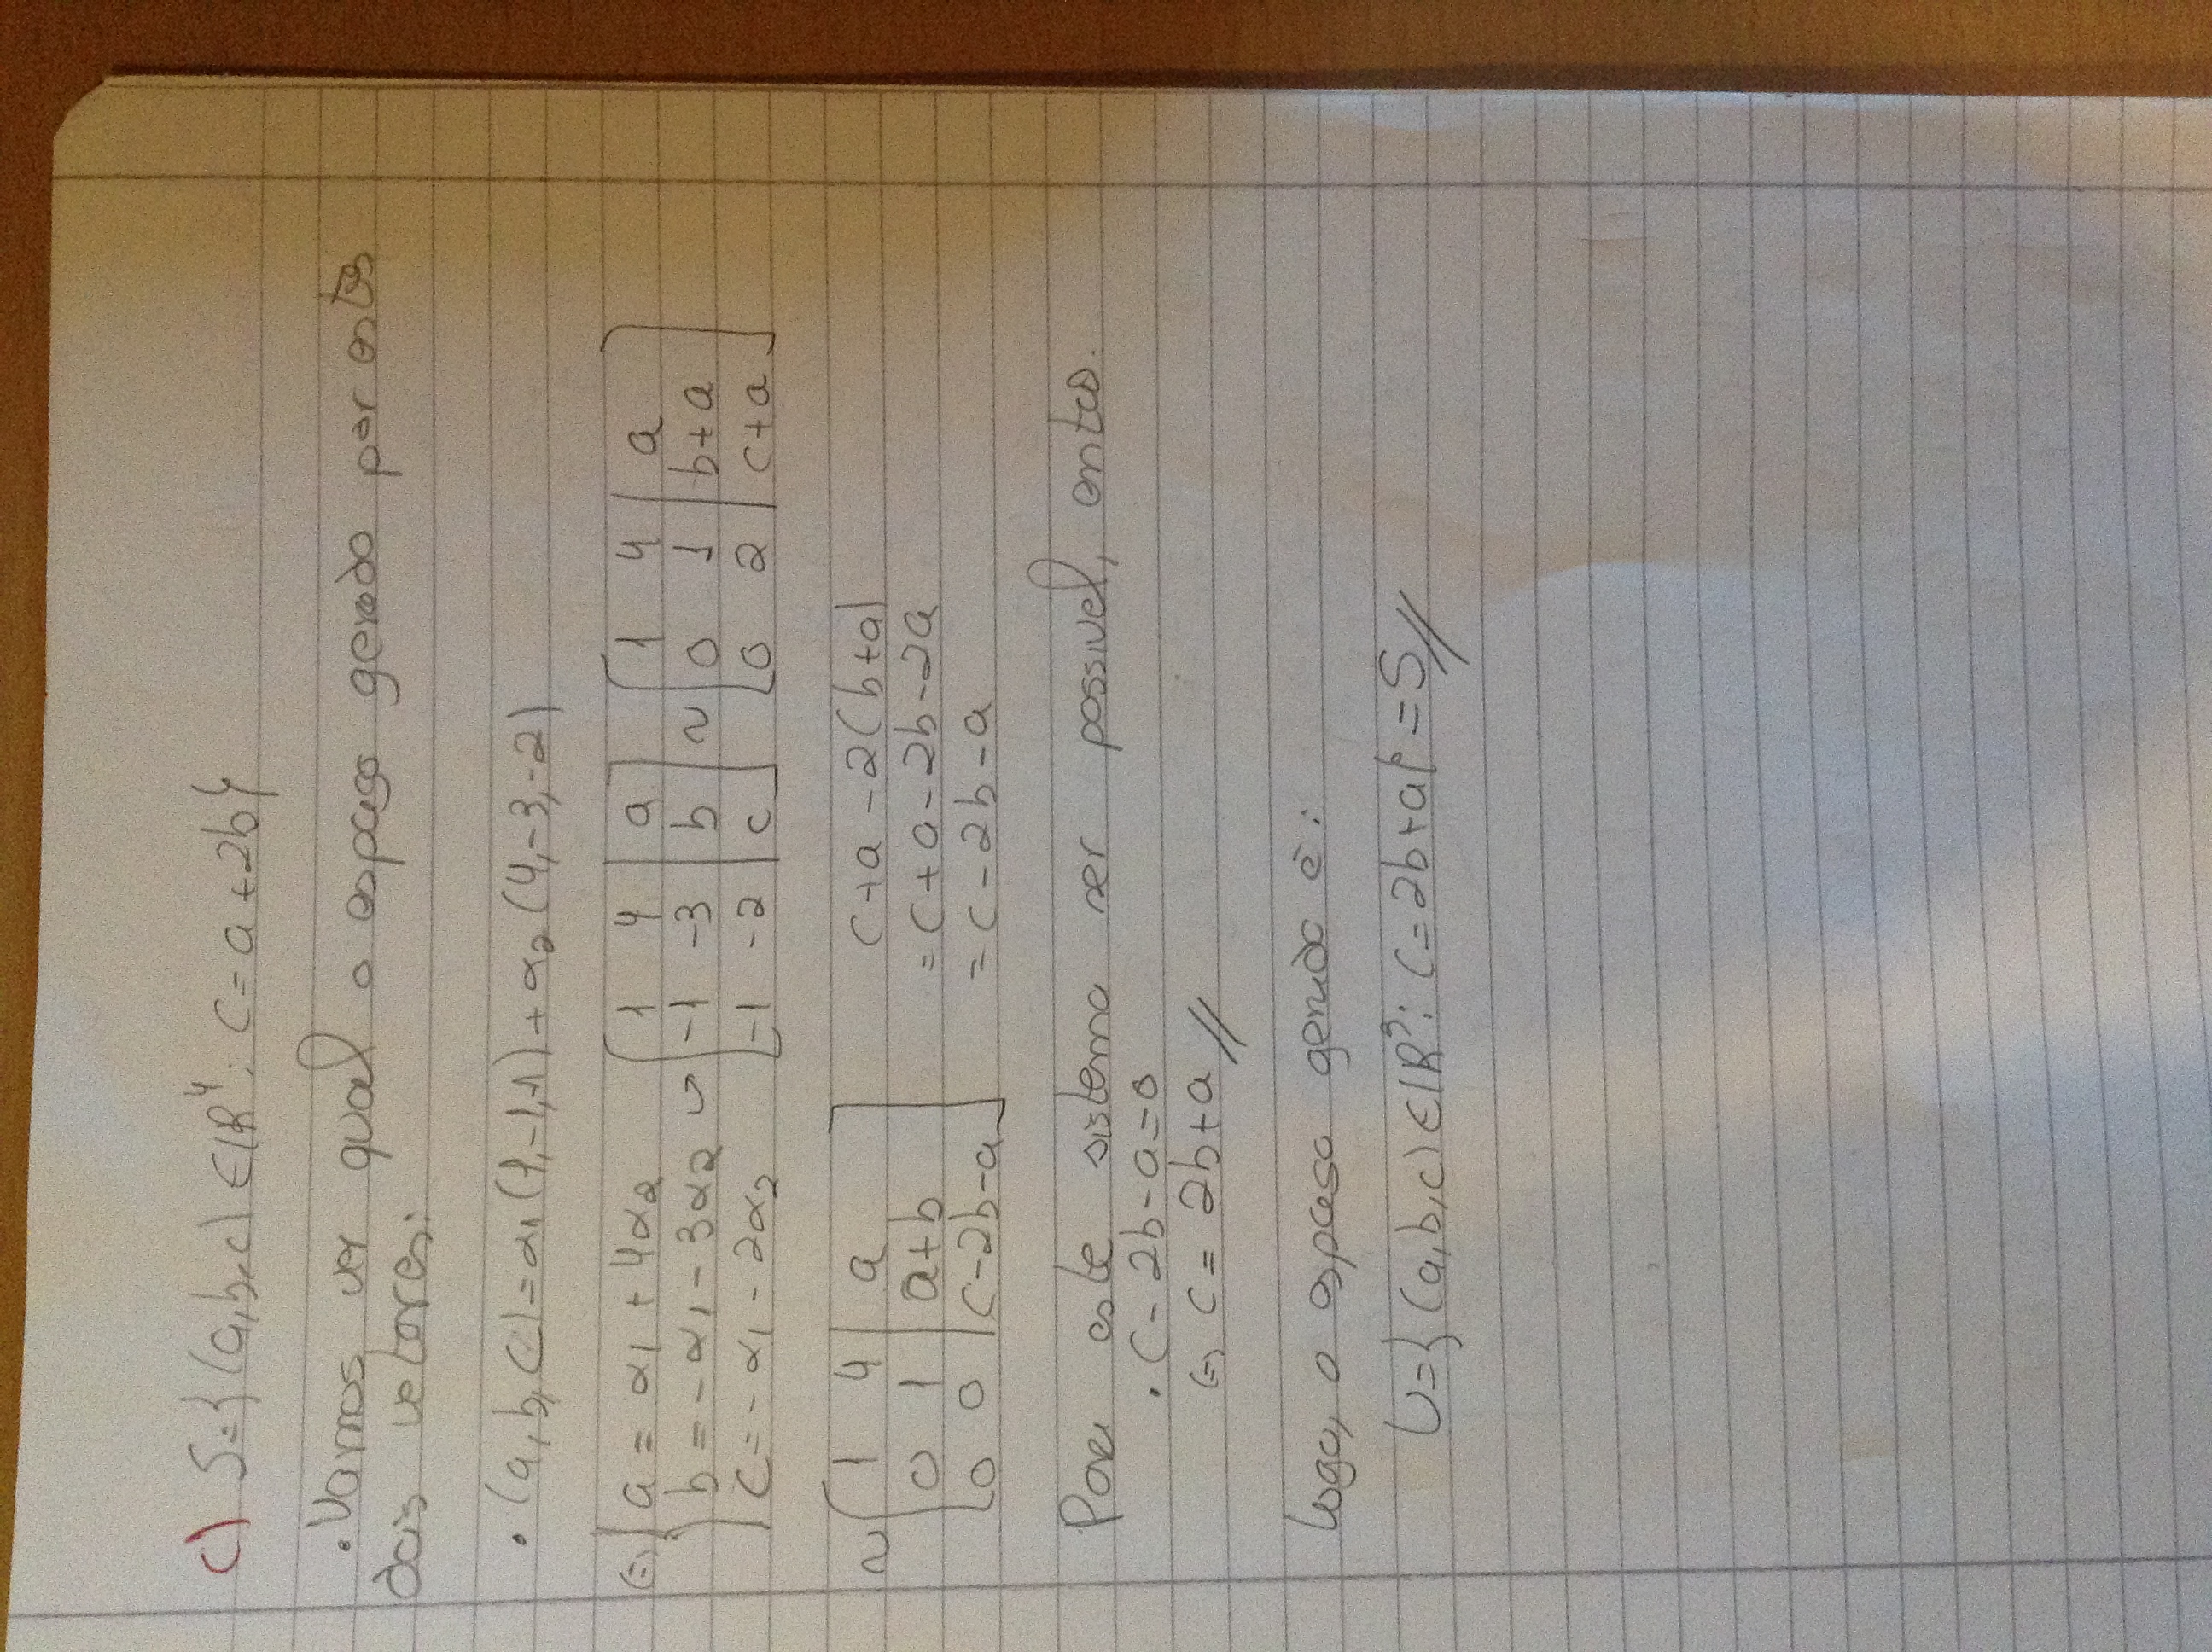 c) S={(a,b,c) ∈ ℝ⁴: c=a+2b}
.Vamos ver qual o espaço gerado por estes
dois vetores:
. (a,b,c)=α₁(1,-1,-1)+α₂(4,-3,-2)
(=) { a = α₁ + 4α₂ [ 1 4 | a ] [ 1 4 | a ]
b = -α₁ - 3α₂ → [ -1 -3 | b ] ~ [ 0 1 | b+a ]
c = -α₁ - 2α₂ [ -1 -2 | c ] [ 0 2 | c+a ]
~ [ 1 4 | a ] c+a-2(b+a)
[ 0 1 | a+b ] = c+a-2b-2a
[ 0 0 | c-2b-a ] = c-2b-a
Para este sistema ser possivel, então.
. c-2b-a=0
(=) c = 2b+a //
Logo, o espaço gerado é:
U={(a,b,c) ∈ ℝ³: c=2b+a} = S //